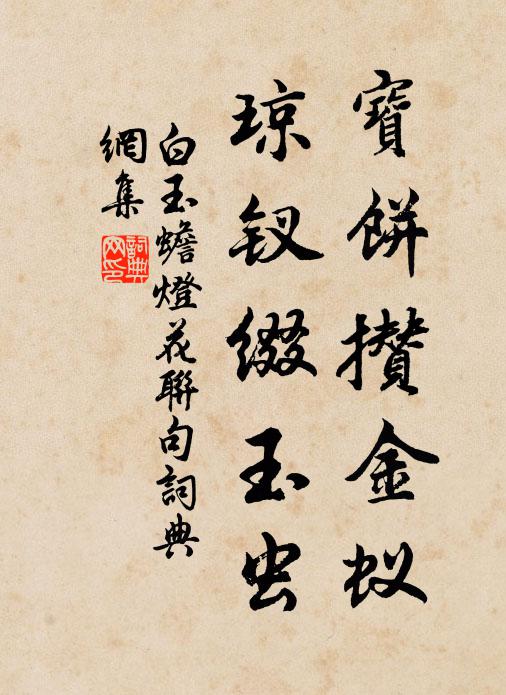 寶餅攢金蚁
琼钗缀玉虫
白玉蟾燈花聯句詞典
網集
詞典
网印